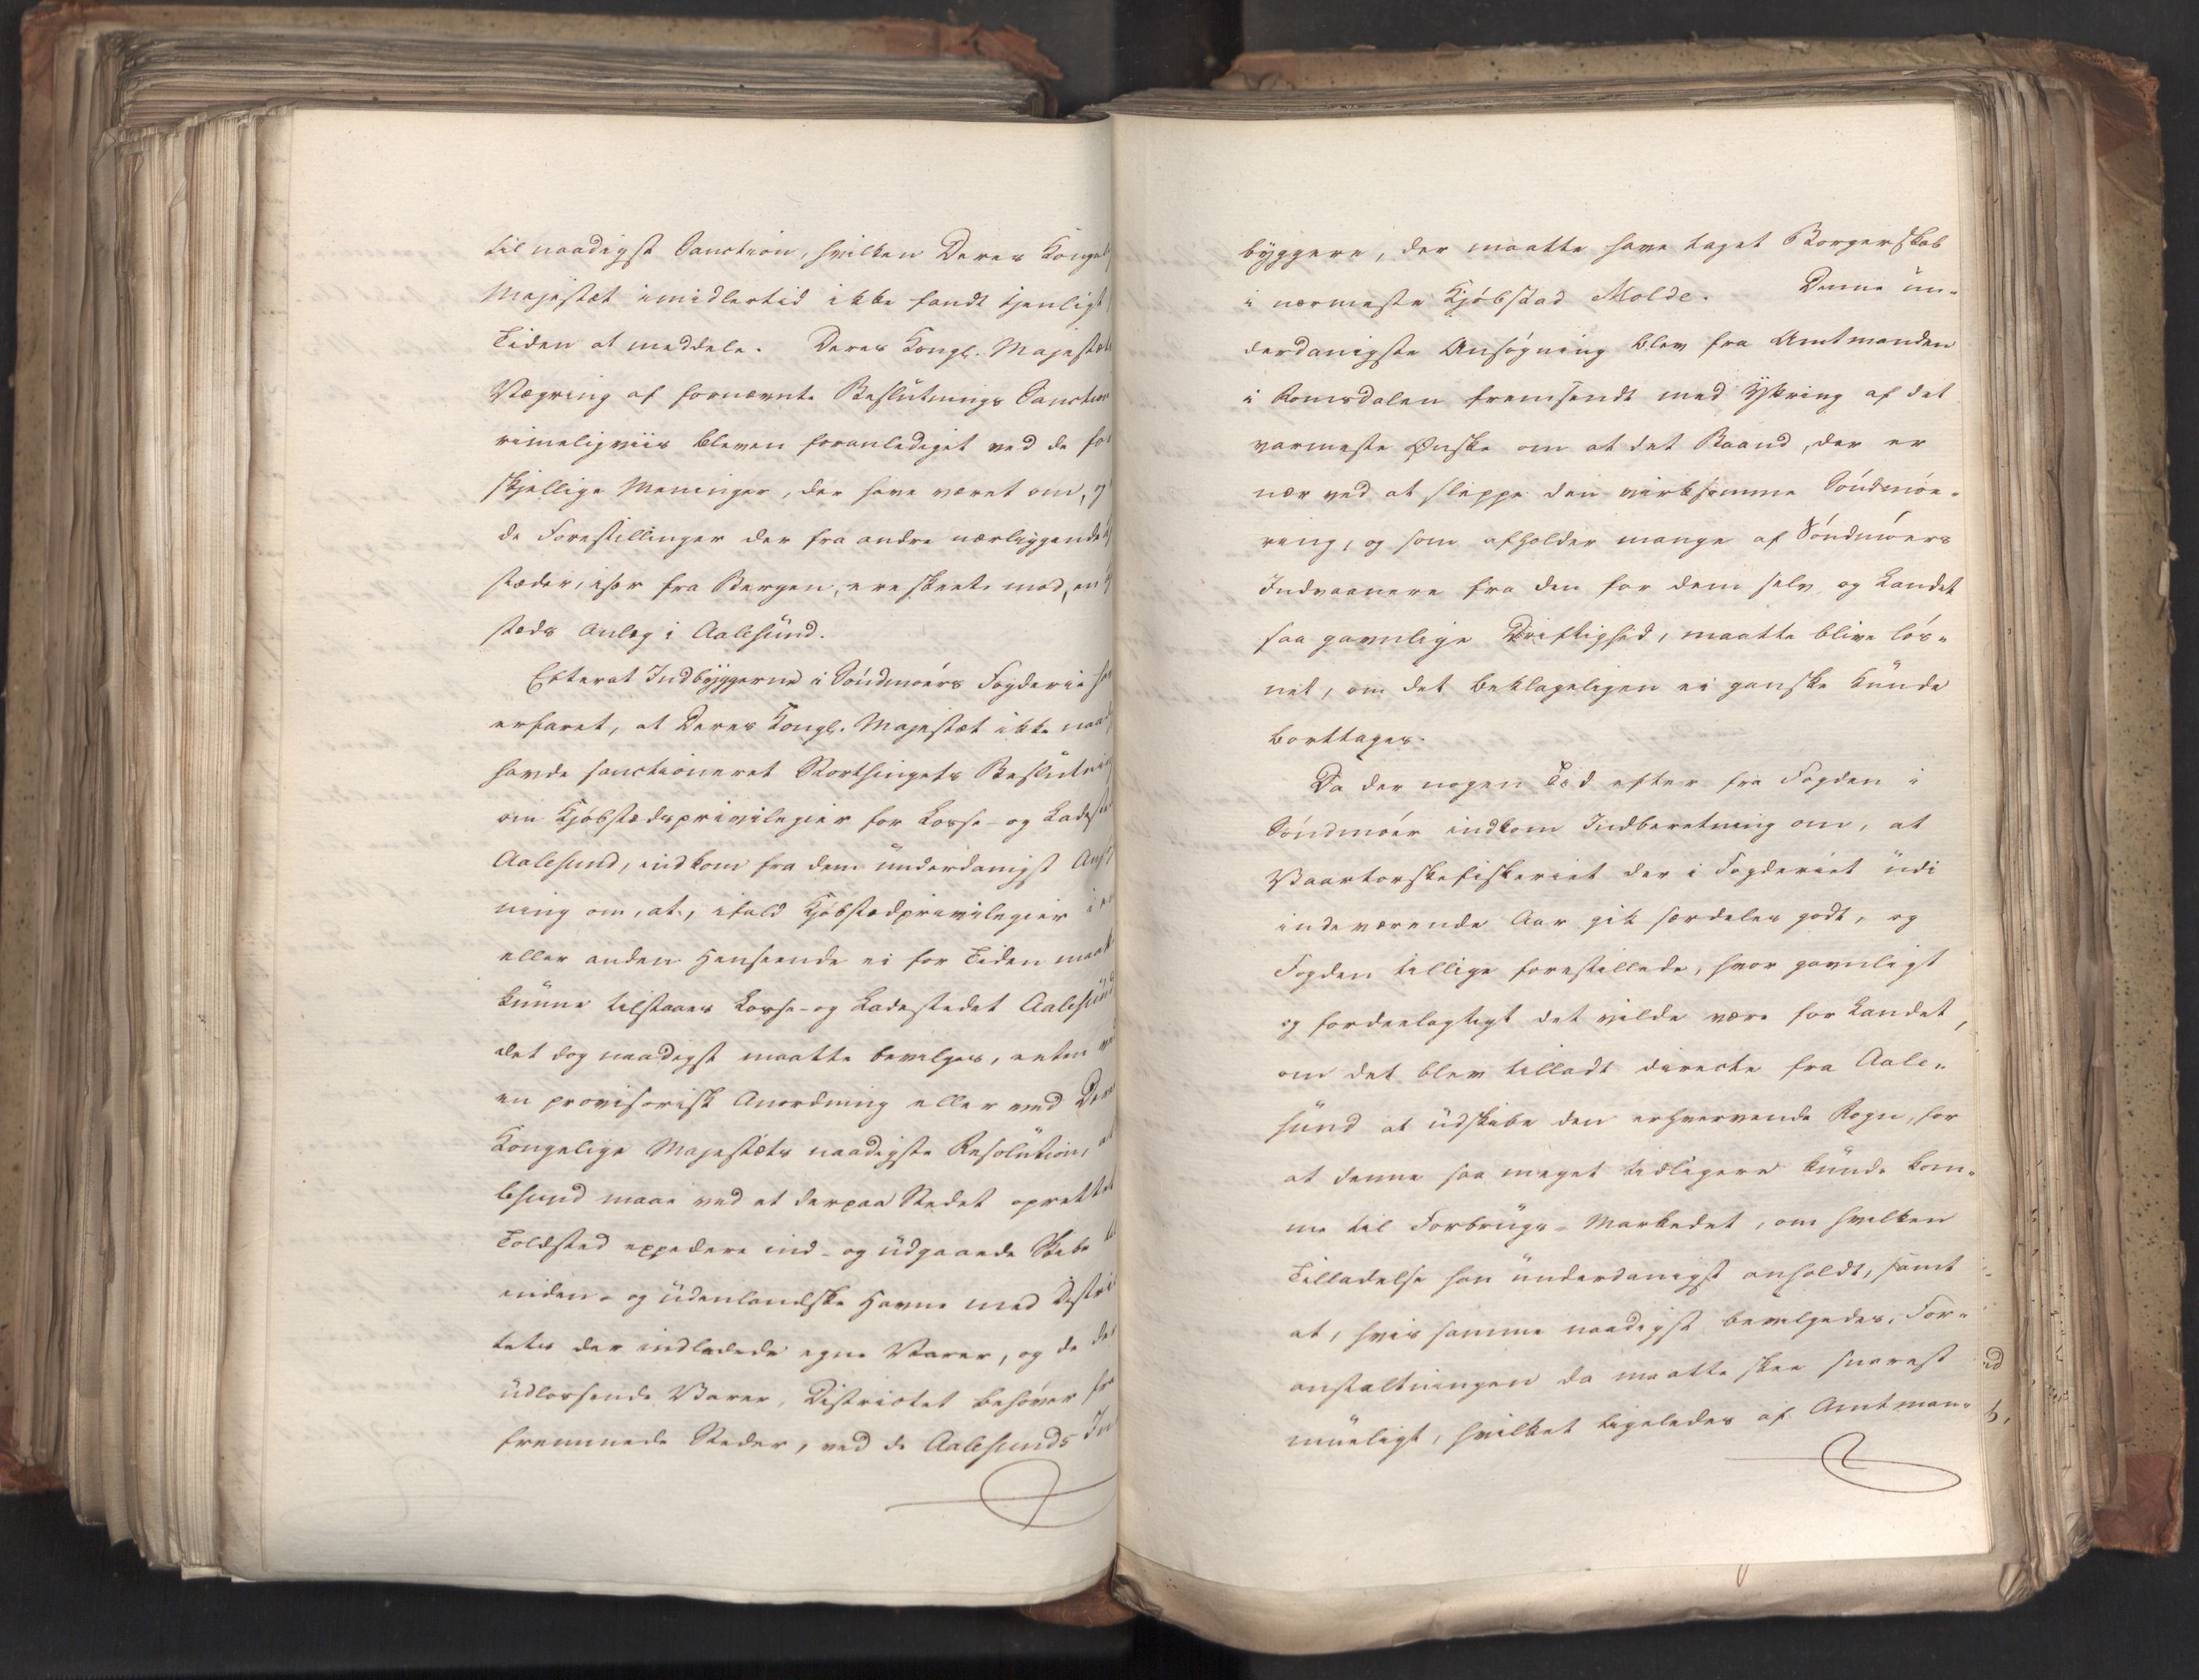 til naadigst Sanction, hvilken Deres Kongel
Majestæt imidlertid ikke fandt tjenligt
Tiden at meddele. Deres Kongl. Majestæts
Vægring af fornævnte Beslutnings Sanction
rimeligviis bleven foranlediget ved de for
skjellige Meninger, der have været om, og
de Forestillinger der fra andre nærliggende
stæder, især fra Bergen, ere skeete mod, en
stæds Anlæg i Aalesund.
Efterat Indbyggerne i Söndmörs Fogderie har
erfaret, at Deres Kongl. Majestæt ikke naad
havde sanctioneret Storthingets Beslutning
om Kjöbstædsprivilegier for Losse- og Ladest
Aalesund, indkom fra dem underdanigst Ansö
ning om, at, ifald Kjöbstædprivilegier i en
eller anden Henseende ei for Tiden maatte
kunne tilstaaes Losse- og Ladestedet Aalesund
det dog naadigst maatte bevilges, enten ved
en provisorisk Anordning eller ved Deres
Kongelige Majestæts naadigste Resolution, at
lesund maae ved et derpaa Stedet oprettet
Toldsted expedere ind- og udgaaende Skibe til
inden- og udenlandske Havne med Distric
tets der indladede egne Varer, og de der
udlossende Varer, Districtet behöver fra
fremmede Steder, ved de Aalesunds In
byggere, der maatte have taget Borgerskab
i nærmeste Kjöbstad Molde. Denne un-
derdanigste Ansögning blev fra Amtmanden
i Romsdalen fremsendt med Yttring af det
varmeste Ønske om at det Baand, der er
nær ved at slappe den virksomme Söndmöe-
ring, og som afholder mange af Söndmöers
Indvaanere fra den for dem selv og Landet
saa gavnlige Driftighed, maatte blive lös-
net, om det beklageligen ei ganske kunde
borttages.
Da der nogen Tid efter fra Fogden i
Söndmöer indkom Indberetning om, at
Vaartorskefiskeriet der i Fogderiet udi
indeværende Aar gik særdeles godt, og
Fogden tillige forestillede, hvor gavnligt
og fordeelagtigt det vilde være for Landet,
om det blev tilladt directe fra Aale-
sund at udskibe den erhvervende Rogn, for
at denne saa meget tidligere kunde kom-
me til Forbrugs-Markedet, om hvilken
Tilladelse han underdanigst anholdt, samt
at, hvis samme naadigst bevilgedes, For-
anstaltningen da maatte skee snarest
mueligt, hvilket ligeledes af Amtman-